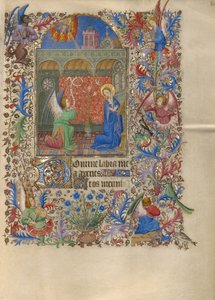 Domine labia me
a aperies
et os meum